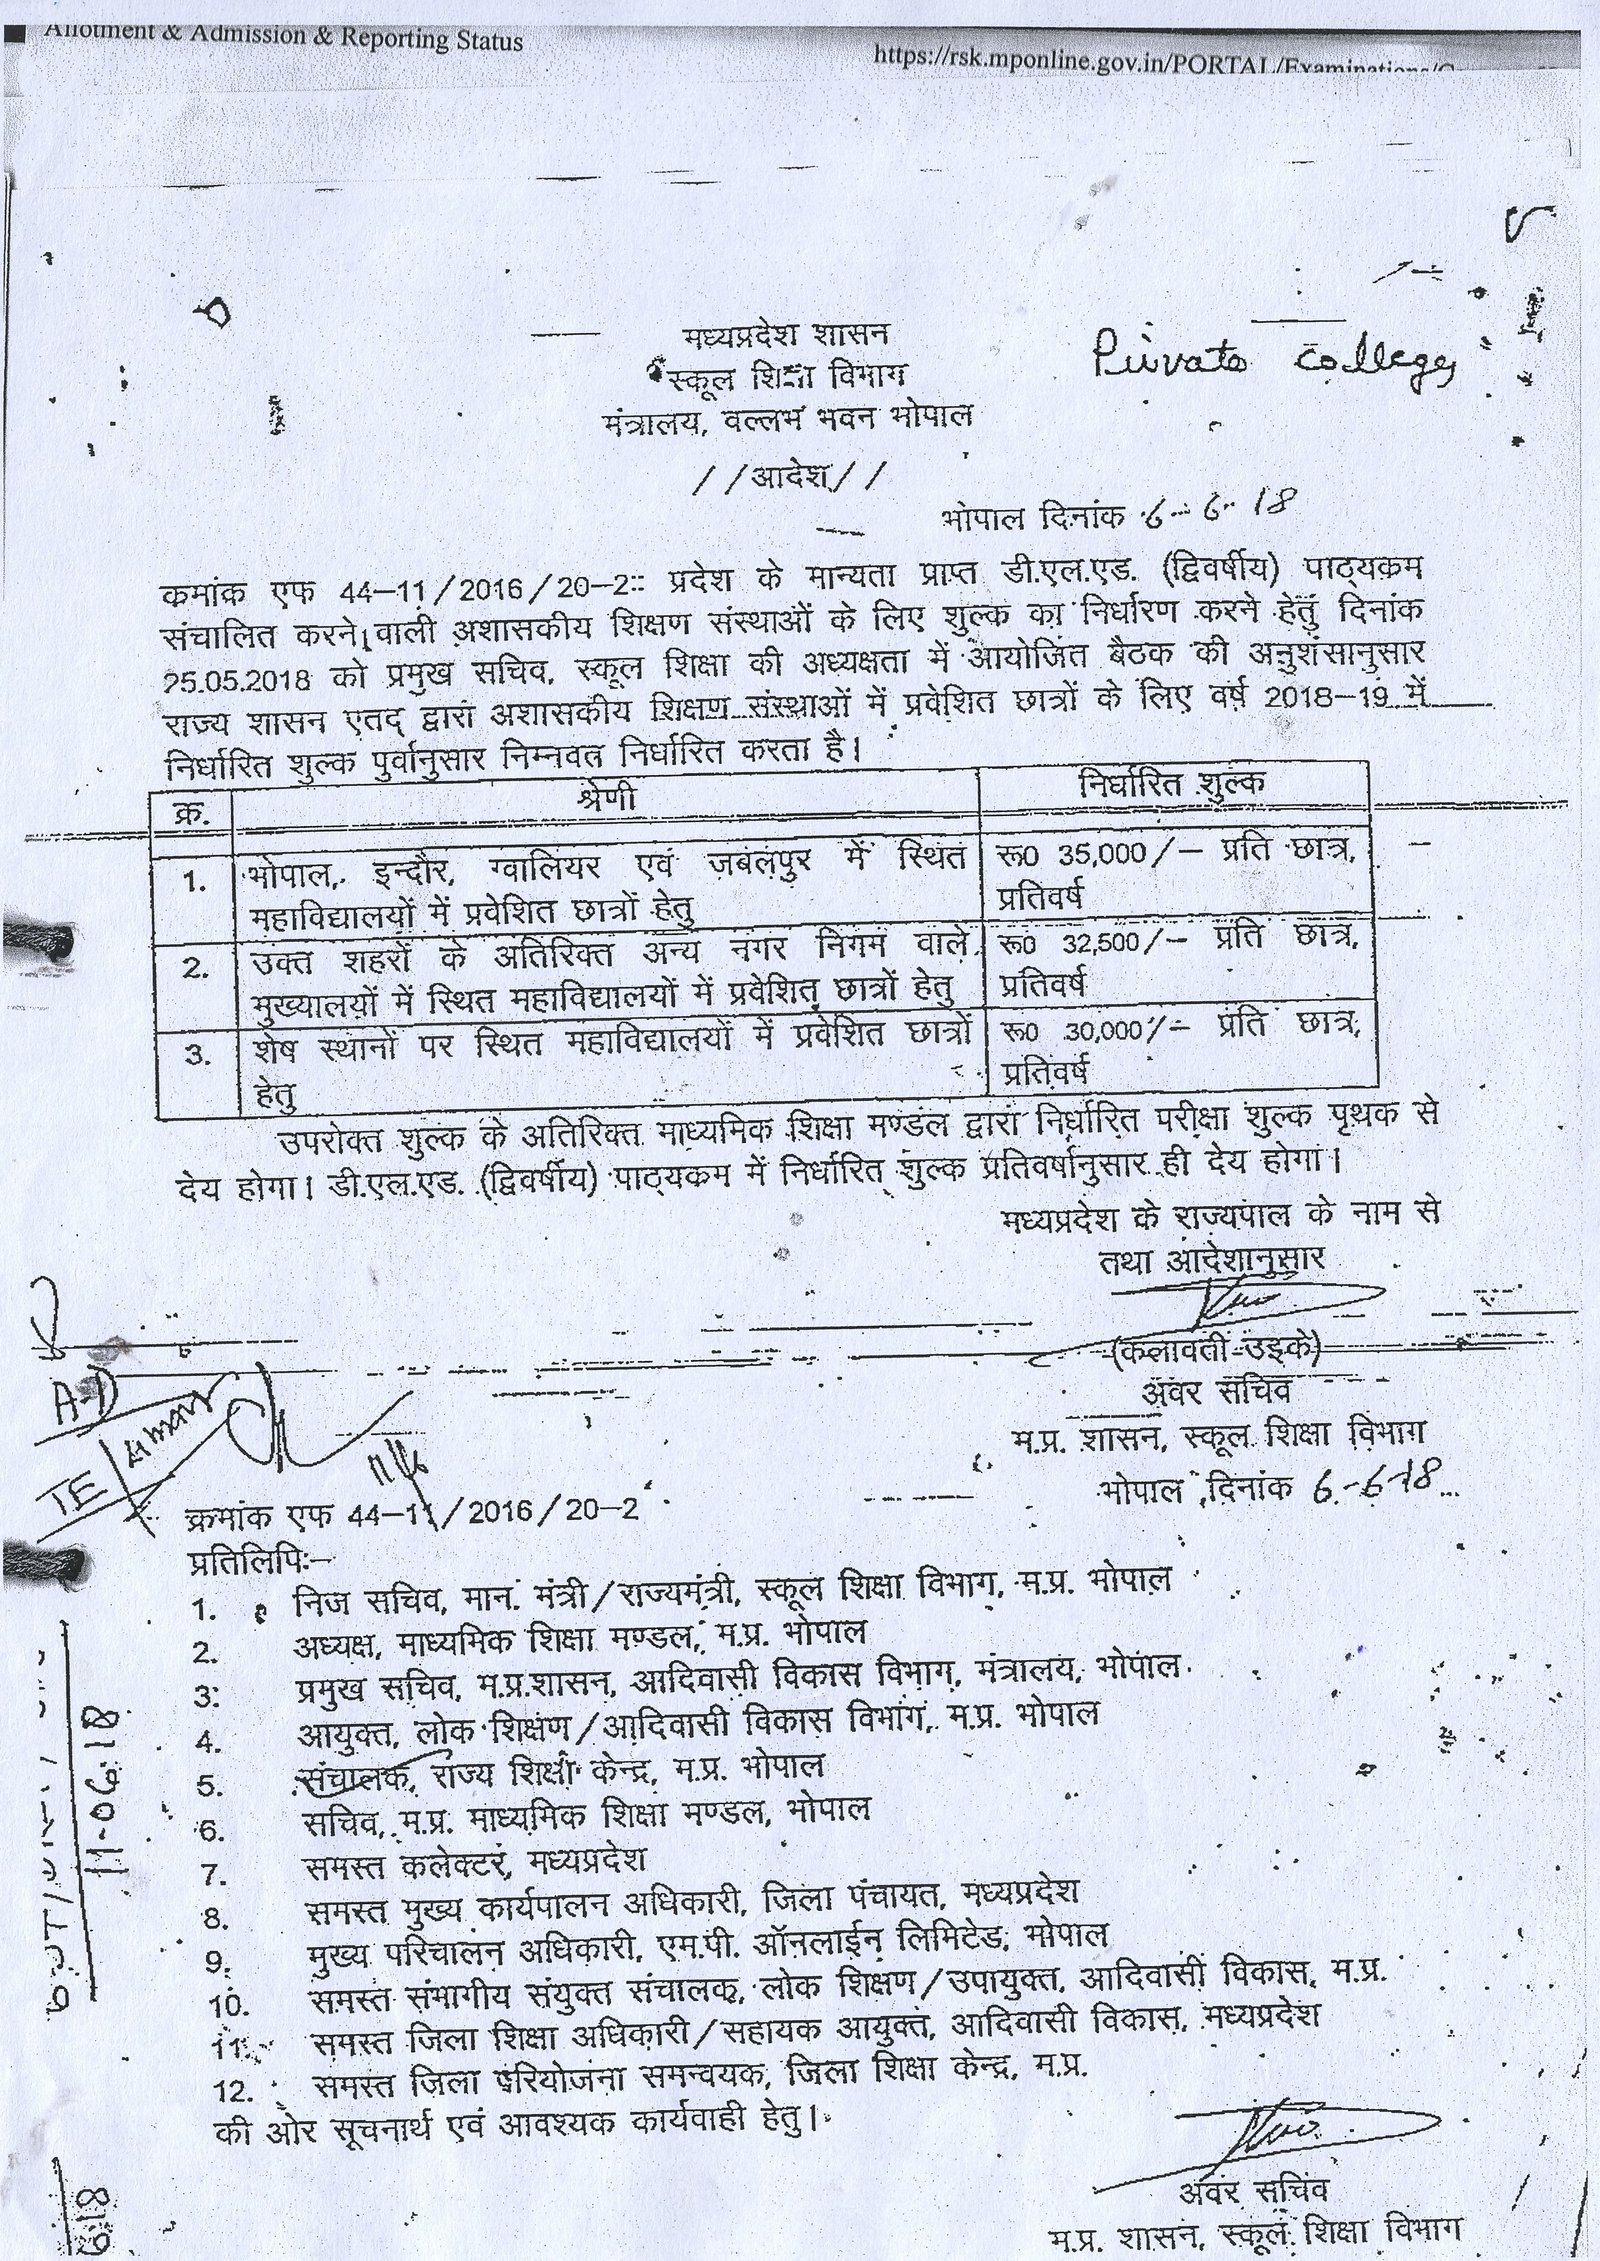 Allotment & Admission & Reporting Status
https://rsk.mponline.gov.in/PORTAL/Examinations/
मध्यप्रदेश शासन
Private Colleges
स्कूल शिक्षा विभाग
मंत्रालय, वल्लभ भवन भोपाल
//आदेश//
भोपाल दिनांक 6-6-18
कमांक एफ 44–11/2016/20–2:: प्रदेश के मान्यता प्राप्त डी.एल.एड. (द्विवर्षीय) पाठ्यकम
संचालित करने वाली अशासकीय शिक्षण संस्थाओं के लिए शुल्क का निर्धारण करने हेतु दिनांक
25.05.2018 को प्रमुख सचिव, स्कूल शिक्षा की अध्यक्षता में आयोजित बैठक की अनुशंसानुसार
राज्य शासन एतद् द्वारा अशासकीय शिक्षण संस्थाओं में प्रवेशित छात्रों के लिए वर्ष 2018–19 में
निर्धारित शुल्क पुर्वानुसार निम्नवत निर्धारित करता है।
क्र. श्रेणी निर्धारित शुल्क
1. भोपाल, इन्दौर, ग्वालियर एवं जबलपुर में स्थित रू0 35,000/– प्रति छात्र,
महाविद्यालयों में प्रवेशित छात्रों हेतु प्रतिवर्ष
2. उक्त शहरों के अतिरिक्त अन्य नगर निगम वाले रू0 32,500/– प्रति छात्र,
मुख्यालयों में स्थित महाविद्यालयों में प्रवेशित छात्रों हेतु प्रतिवर्ष
3. शेष स्थानों पर स्थित महाविद्यालयों में प्रवेशित छात्रों रू0 30,000/– प्रति छात्र,
हेतु प्रतिवर्ष
उपरोक्त शुल्क के अतिरिक्त माध्यमिक शिक्षा मण्डल द्वारा निर्धारित परीक्षा शुल्क पृथक से
देय होगा। डी.एल.एड. (द्विवर्षीय) पाठ्यकम में निर्धारित शुल्क प्रतिवर्षानुसार ही देय होगा।
मध्यप्रदेश के राज्यपाल के नाम से
तथा आदेशानुसार
(कलावती उइके)
अवर सचिव
म.प्र. शासन, स्कूल शिक्षा विभाग
भोपाल दिनांक 6-6-18
A-D
TE
11/6
क्रमांक एफ 44–11/2016/20–2
प्रतिलिपिः–
1. निज सचिव, मान. मंत्री/राज्यमंत्री, स्कूल शिक्षा विभाग, म.प्र. भोपाल
2. अध्यक्ष, माध्यमिक शिक्षा मण्डल, म.प्र. भोपाल
3. प्रमुख सचिव, म.प्र.शासन, आदिवासी विकास विभाग, मंत्रालय, भोपाल
4. आयुक्त, लोक शिक्षण/आदिवासी विकास विभाग, म.प्र. भोपाल
5. संचालक, राज्य शिक्षा केन्द्र, म.प्र. भोपाल
6. सचिव, म.प्र. माध्यमिक शिक्षा मण्डल, भोपाल
7. समस्त कलेक्टर, मध्यप्रदेश
8. समस्त मुख्य कार्यपालन अधिकारी, जिला पंचायत, मध्यप्रदेश
9. मुख्य परिचालन अधिकारी, एम.पी. ऑनलाईन लिमिटेड, भोपाल
10. समस्त संभागीय संयुक्त संचालक, लोक शिक्षण/उपायुक्त, आदिवासी विकास, म.प्र.
11. समस्त जिला शिक्षा अधिकारी/सहायक आयुक्त, आदिवासी विकास, मध्यप्रदेश
12. समस्त जिला परियोजना समन्वयक, जिला शिक्षा केन्द्र, म.प्र.
की ओर सूचनार्थ एवं आवश्यक कार्यवाही हेतु।
11-06-18
अवर सचिव
म.प्र. शासन, स्कूल शिक्षा विभाग